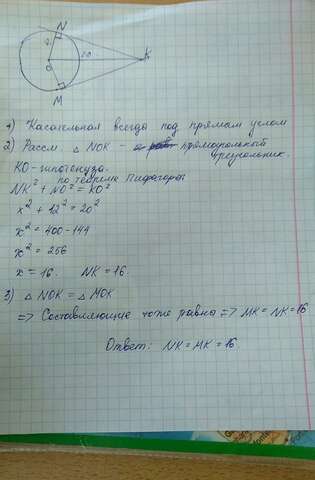 N
12
20
O
K
M
1) Касательная всегда под прямым углом
2) Рассм △ NOK - прямоугольный треугольник.
KO - гипотенуза.
по теореме Пифагора
NK² + NO² = KO²
x² + 12² = 20²
x² = 400 - 144
x² = 256
x = 16. NK = 16.
3) △ NOK = △ MOK
=> Составляющие тоже равны => MK = NK = 16
Ответ: NK = MK = 16.